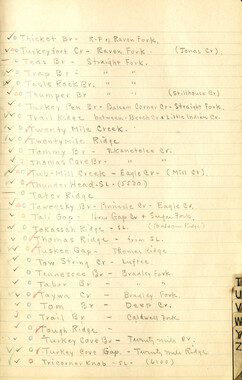 Tricket Br - R.F of Raven Fork.
Turkeyfoot Cr - Raven Fork. (Jones Cr)
Teas Br - Straight Fork.
Trap Br - " "
Table Rock Br. " "
Thumper Br " " (Stillhouse Br)
Turkey Pen Br - Balsam Corner Cr - Straight Fork.
Trail Ridge between Beech Cr & Little Indian Cr.
Twenty Mile Creek.
Twentymile Ridge
Tommy Br - Ekaneetelee Cr.
Thomas Cove Br - " "
Tub-Mill Creek - Eagle Br - (Mill Cr).
Thunder Head - SL - (5530)
Tater Ridge
Tawesky Br - Pinnacle Br - Eagle Cr.
Tali Gap - Haw Gap Cr & Sugar Fork.
Jokassah Ridge - SL.
Thomas Ridge - from SL.
Tuskee Gap - Thomas Ridge
Tow String Cr - Luftee
Tennessee Br - Bradley Fork
Tabor Br - " "
Taywa Cr - Bradley Fork
Tom Br - Deep Br.
Trail Br - Caldwell Fork
Tough Ridge -
Turkey Cove Br - Twenty mile Cr.
Turkey Cove Gap - Twenty mile Ridge
Tricorner Knob - SL - (6100)
T
U
V
W
Y
Z